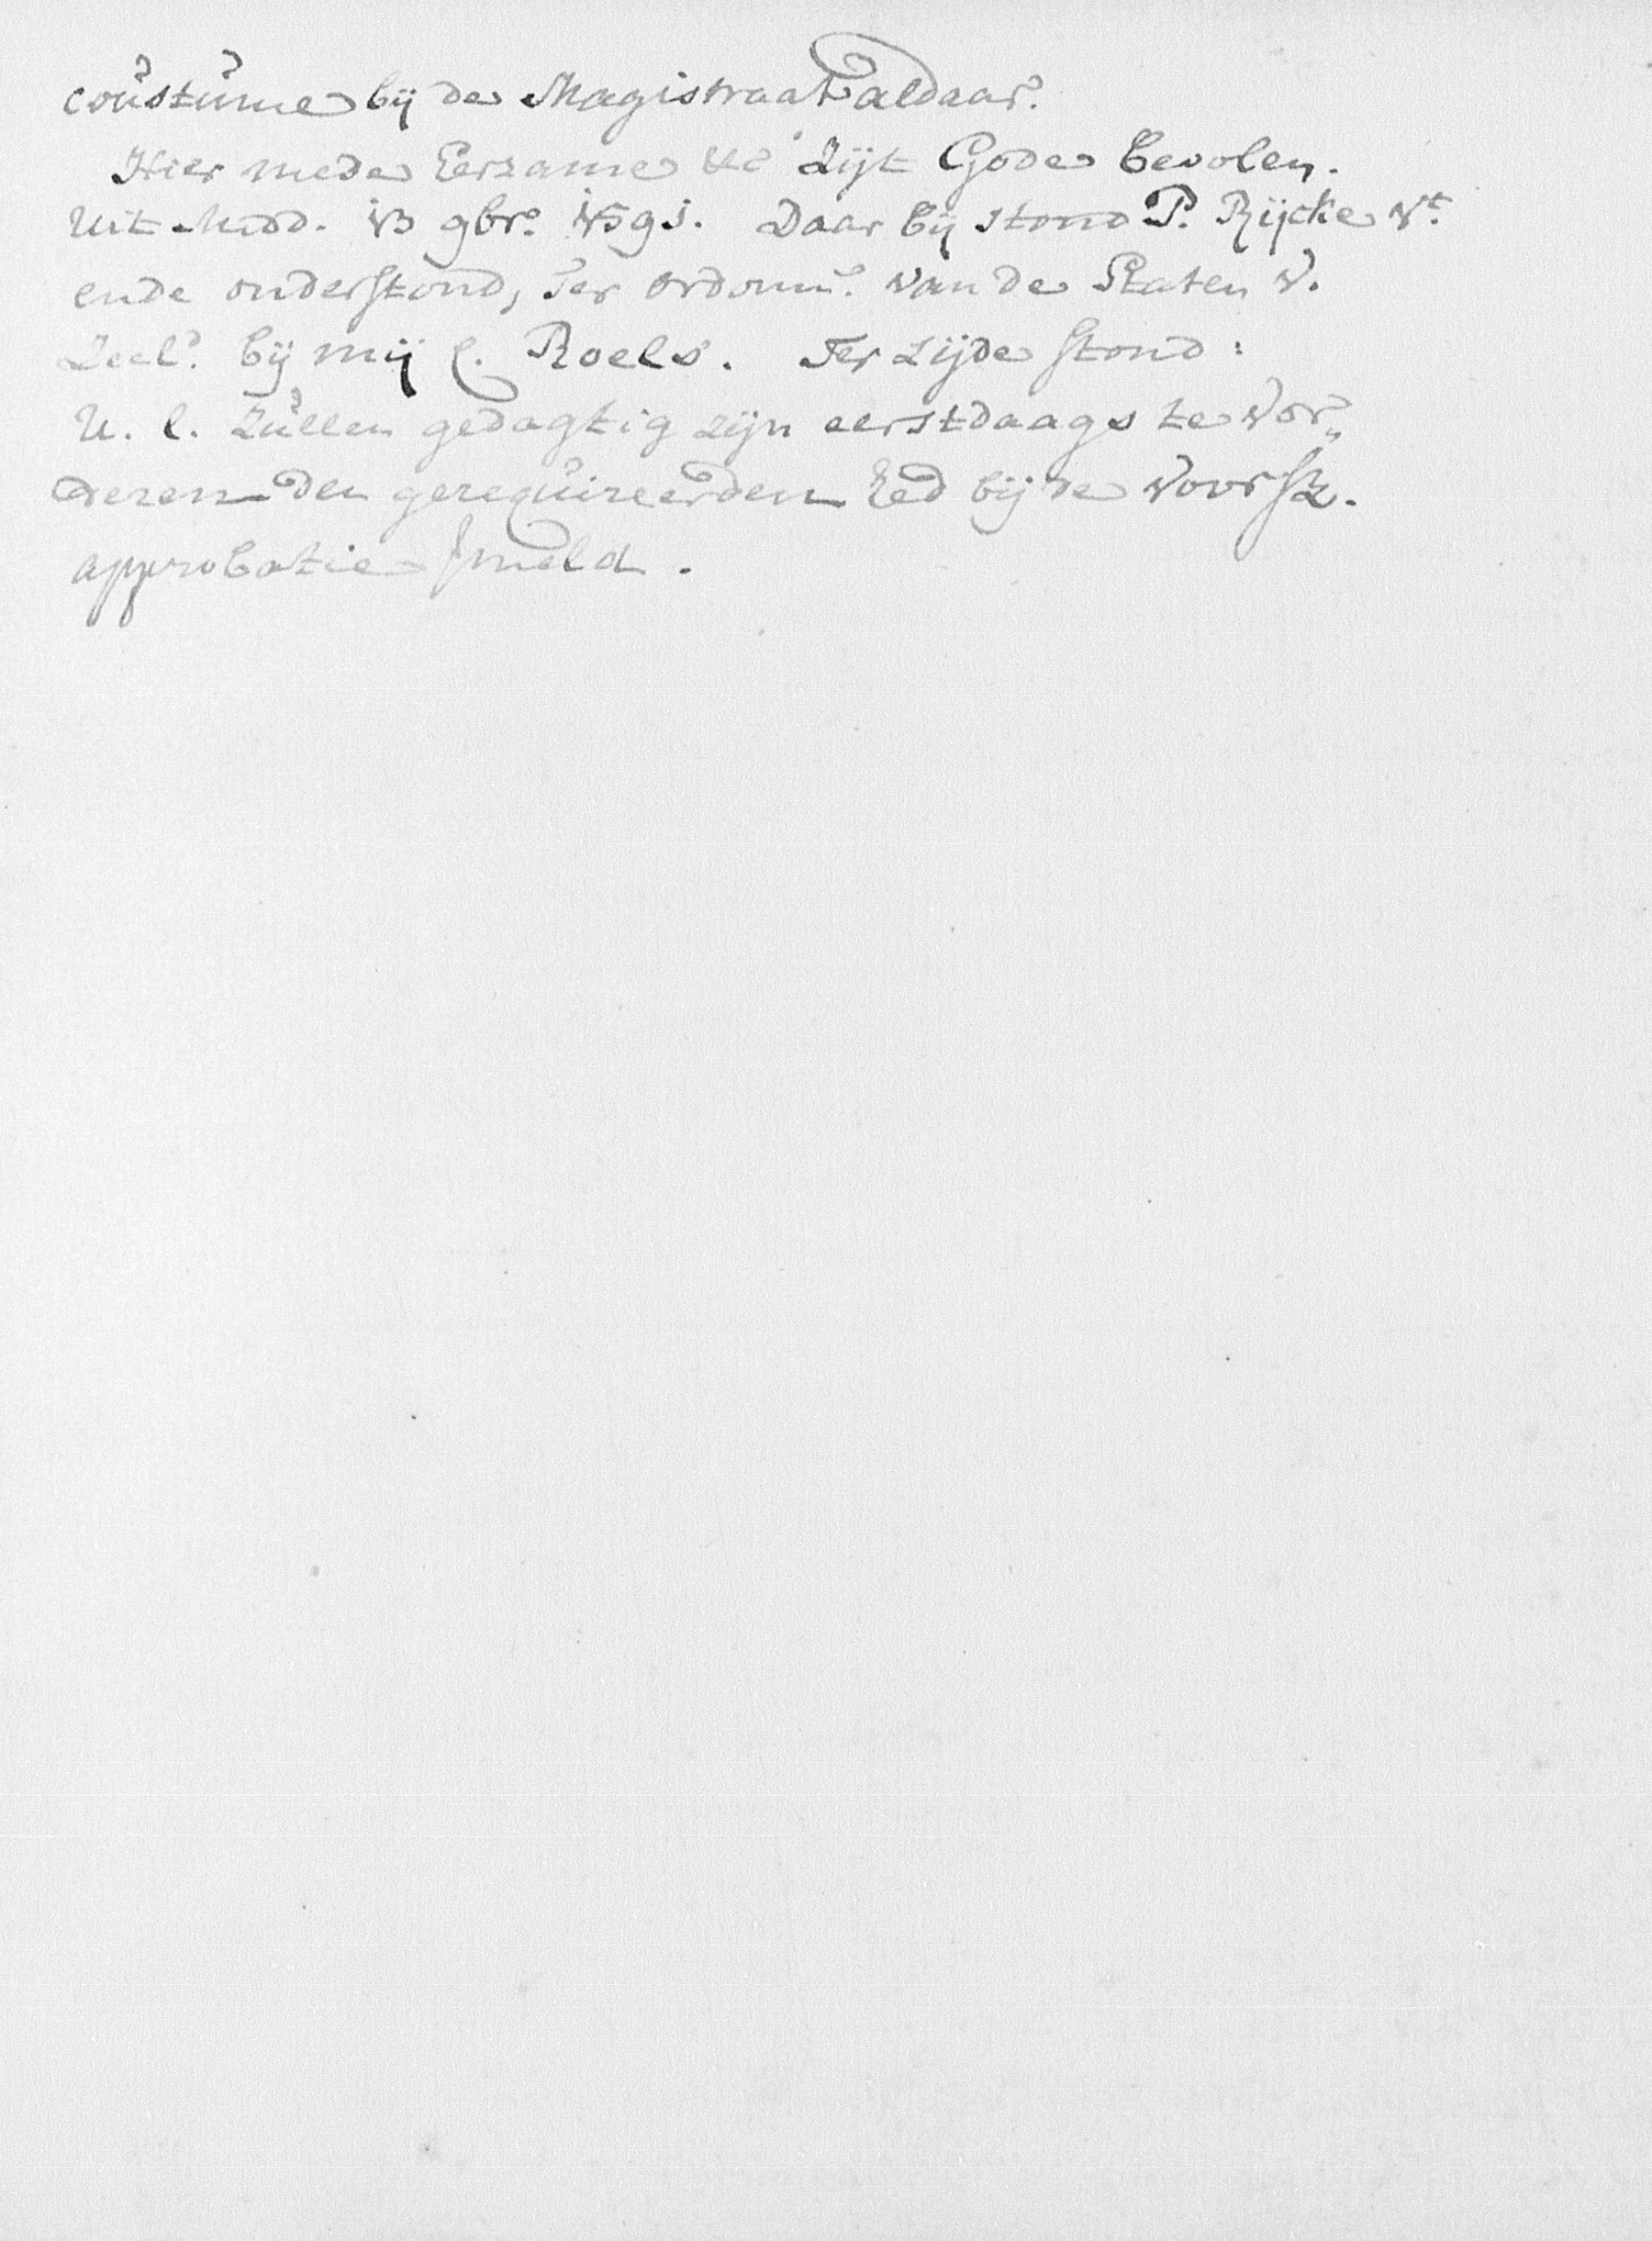 coustume bij de Magistraat aldaar.
Hier mede Eerzame &c Zijt Gode bevolen.
Uit Midd. 13 9br. 1591. Daar bij stond P. Rijcke vt.
ende onderstond, Ter ordonn. van de Staten v.
Zeel. bij mij C. Roels. Ter zijde stond:
U. l. Zullen gedagtig zijn eerstdaags te vor„
deren den gerequireerden Eed bij de voorsz.
approbatie